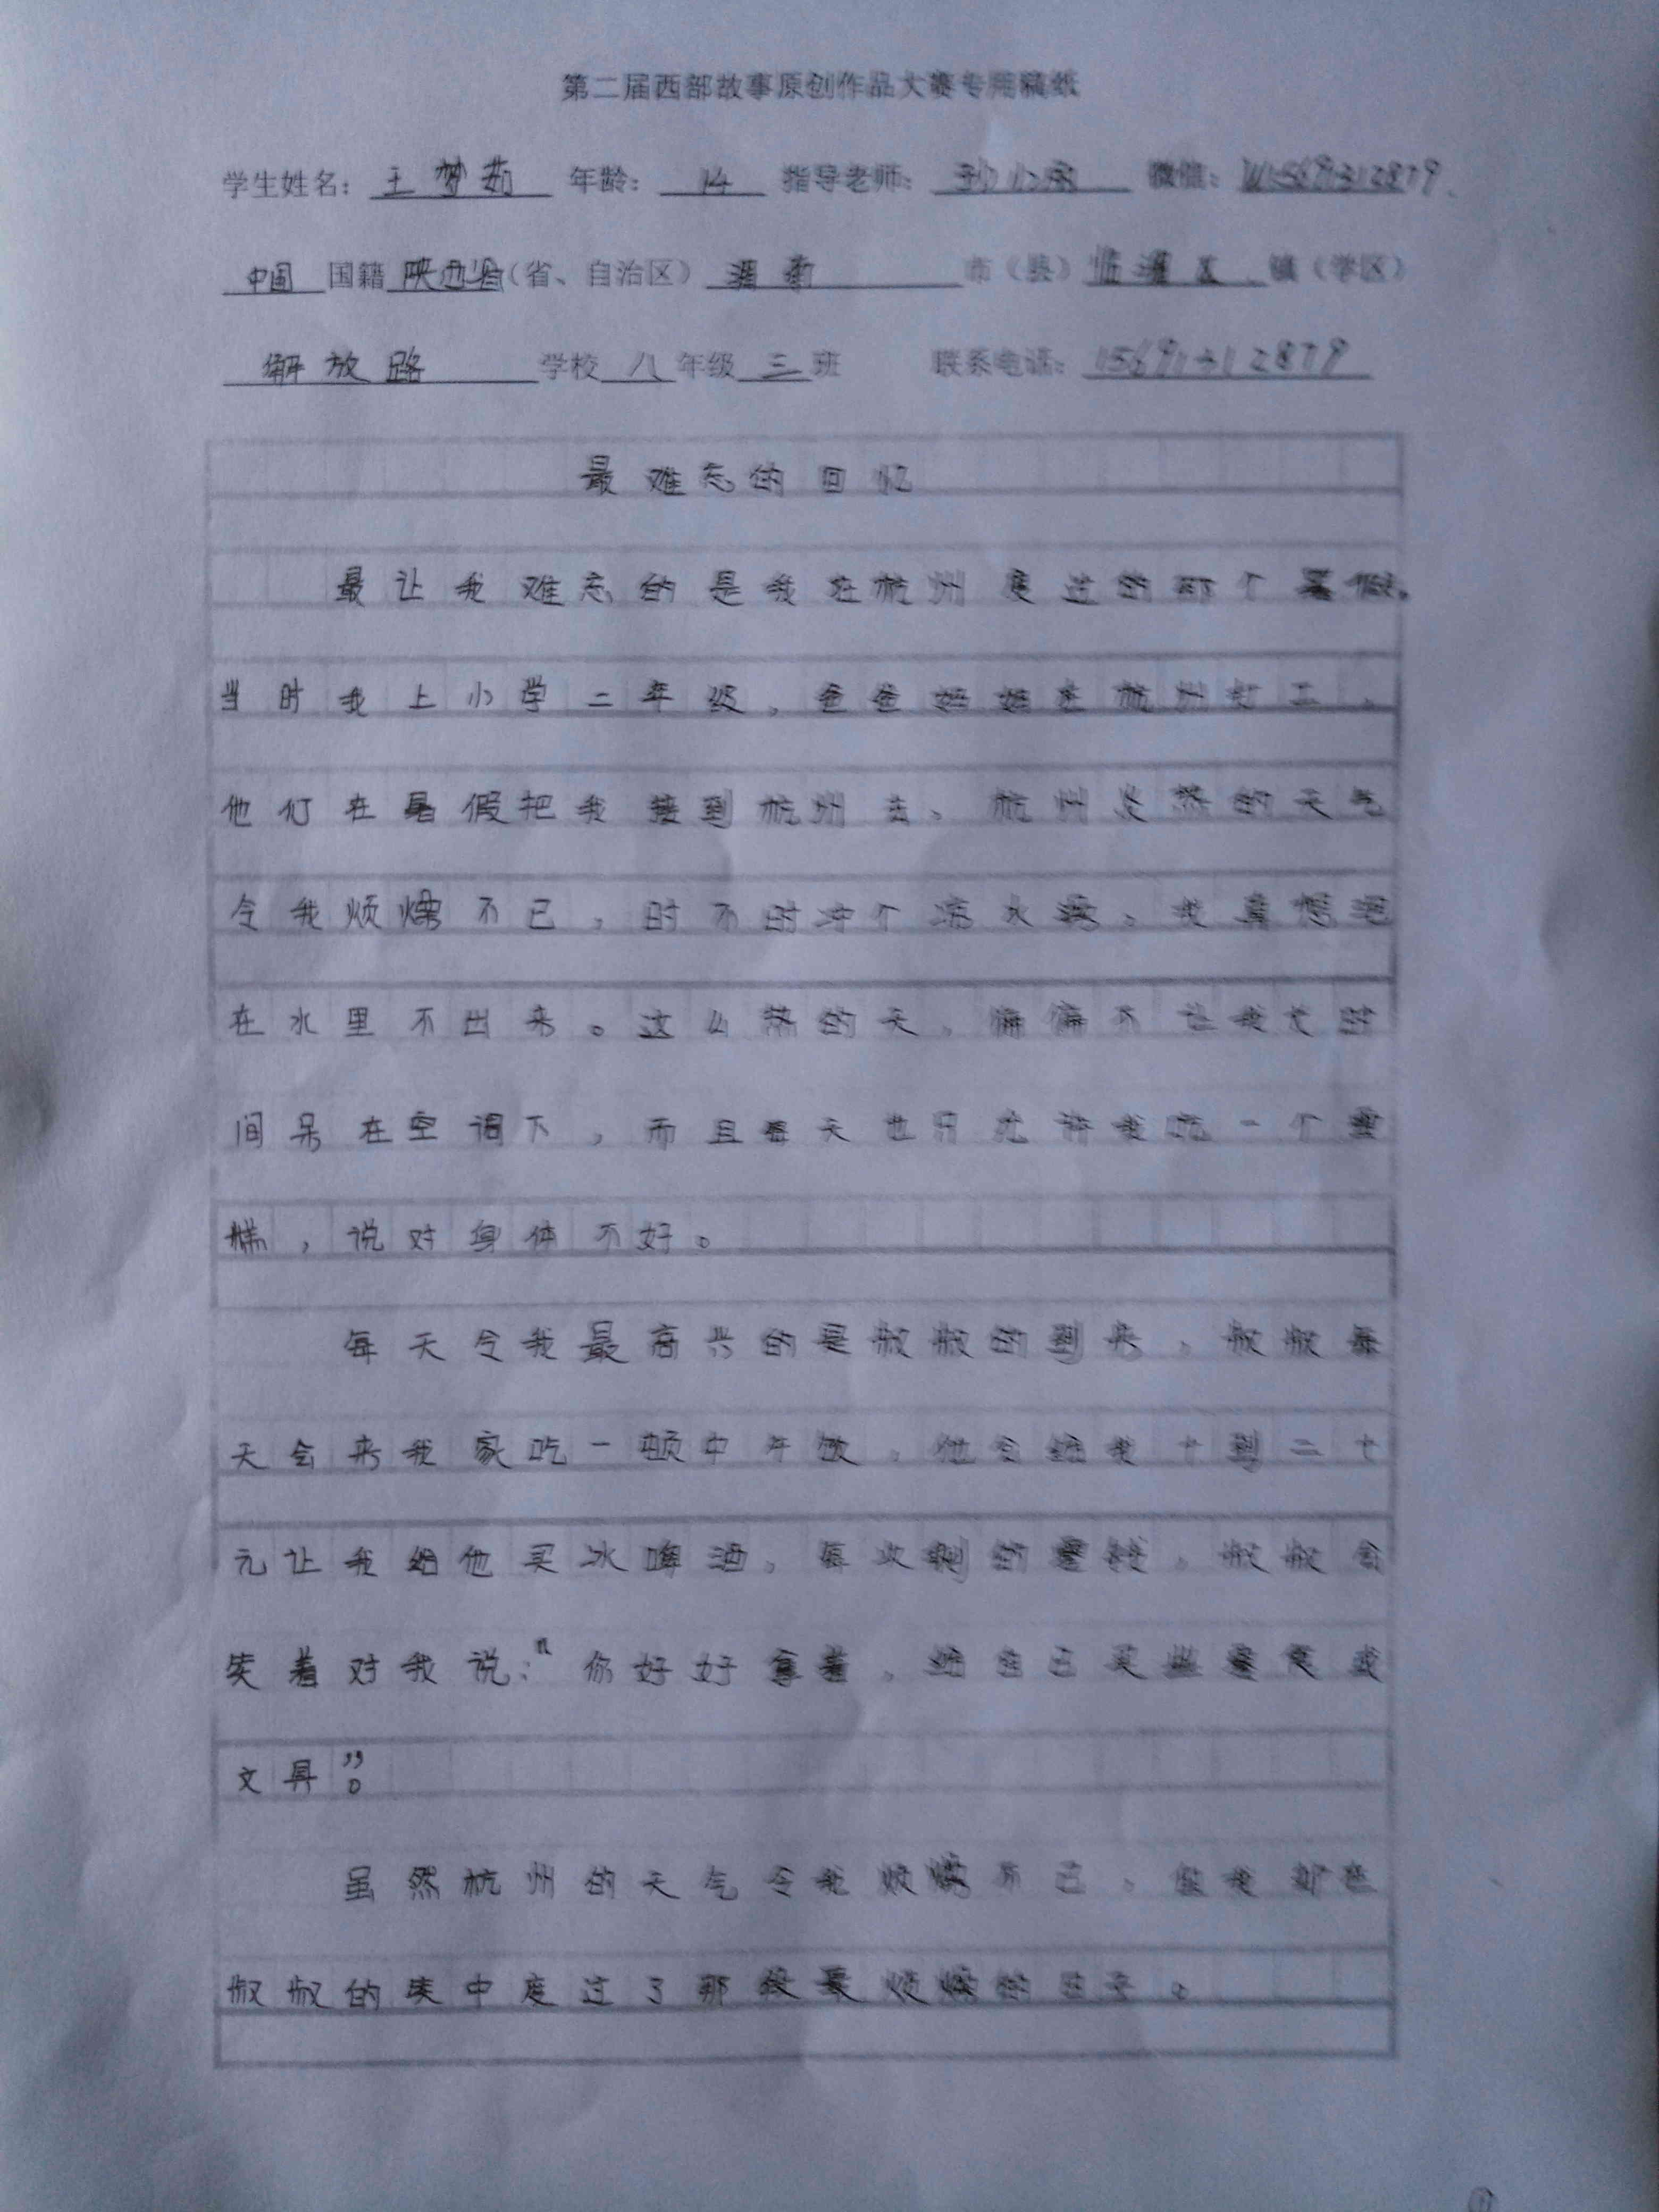 第二届西部故事原创作品大赛专用稿纸
学生姓名：王梦茹 年龄：14 指导老师： 微信：W15691312879
中国国籍陕西省（省、自治区）渭南市（县）临渭区镇（学区）
解放路学校八年级三班 联系电话：15691312879
最难忘的回忆
最让我难忘的是我在杭州度过的那个暑假。
当时我上小学二年级，爸爸妈妈在杭州打工，
他们在暑假把我接到杭州去，杭州炎热的天气
令我烦燥不已，时不时冲个凉水澡，我真想泡
在水里不出来。这么热的天，偏偏不让我长时
间呆在空调下，而且每天也只允许我吃一个雪
糕，说对身体不好。
每天令我最高兴的是叔叔的到来，叔叔每
天会来我家吃一顿中午饭，他会给我十到二十
元让我给他买冰啤酒，每次剩的零钱，叔叔会
笑着对我说：“你好好拿着，给自己买些零食或
文具”。
虽然杭州的天气令我烦燥不已，但我却在
叔叔的笑中度过了那段最烦燥的日子。